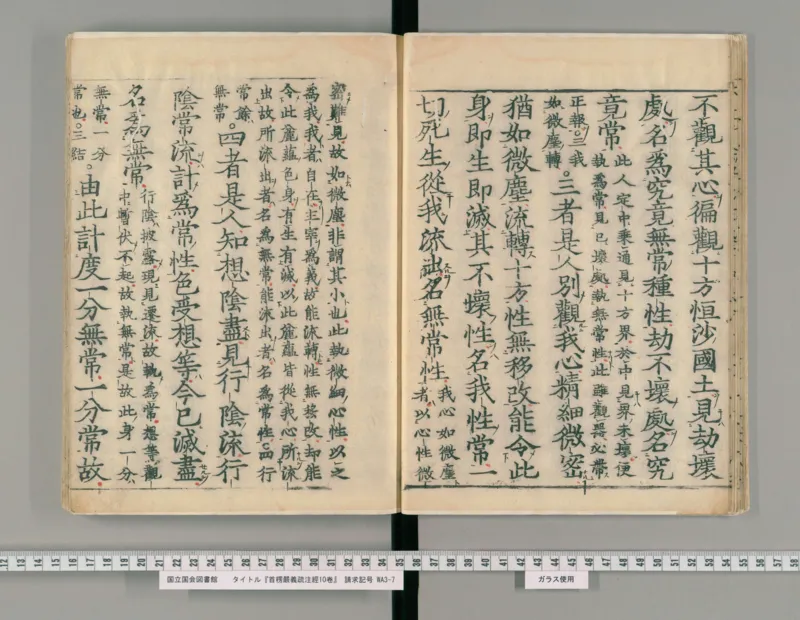 不觀其心徧觀十方恒沙國土見劫壞
處名爲究竟無常種性劫不壞處名究
竟常
此人定中乘通見十方界於中見界未壞便
執爲常見已壞處執無常性此雖觀器必帶
正報。三我
如微塵轉
。三者是人別觀我心精細微密
猶如微塵流轉十方性無移改能令此
身即生即滅其不壞性名我性常一
切死生從我流出名無常性
我心如微塵
者以心性微
密難見故如微塵非謂其小也此執微細心性以之
爲我我者自在主宰爲義故能流轉性無移改却能
令此麁蘊色身有生有滅以此麁蘊皆從我心所流
出故所流出者名爲無常能流出者名爲常性四行
常餘
無常
。四者是人知想陰盡見行陰流行
陰常流計爲常性色受想等今已滅盡
名爲無常
行陰披露現見遷流故執爲常想等觀
中暫伏不起故執無常是故此身一分
無常一分
常也。三結
。由此計度一分無常一分常故
12 13 14 15 16 17 18 19 20 21 22 23 24 25 26 27 28 29 30 31 32 33 34 35 36 37 38 39 40 41 42 43 44 45 46 47 48 49 50 51 52 53 54 55 56 57 58
国立国会図書館 タイトル『首楞嚴義疏注經10巻』 請求記号 WA3-7
ガラス使用